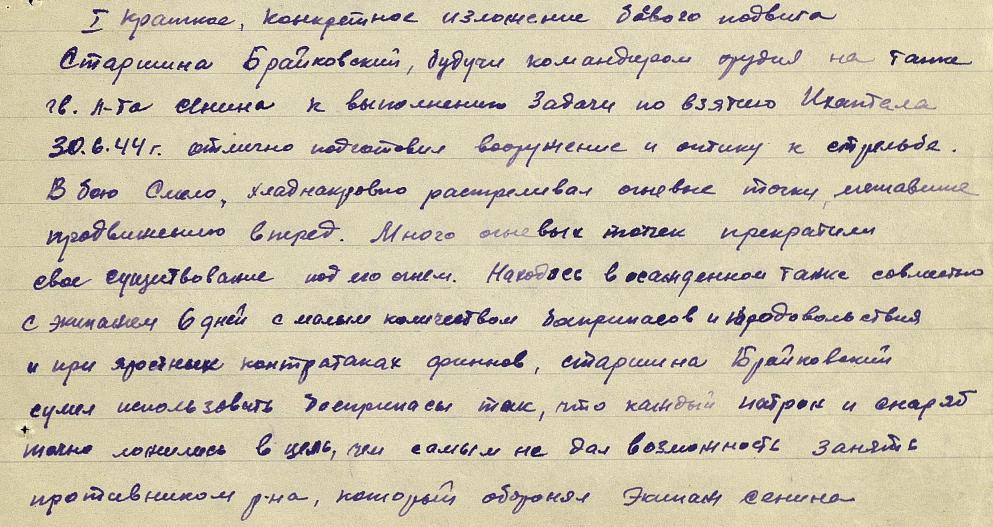 I Краткое, конкретное изложение боевого подвига
Старшина Брайковский, будучи командиром орудия на танке
гв. л-та Сенина к выполнению задачи по взятию Ихантала
30.6.44 г. отлично подготовил вооружение и оптику к стрельбе.
В бою смело, хладнакровно растреливал огневые точки, мешавшие
продвижению вперед. Много огневых точек прекратили
свое существование под его огнем. Находясь в осажденном танке совместно
с экипажем 6 дней с малым количеством боеприпасов и продовольствия
и при яростных контратаках финнов, старшина Брайковский
сумел использовать боеприпасы так, что каждый патрон и снаряд
точно ложились в цель, чем самым не дал возможность занять
противником р-на, который оборонял экипаж Сенина